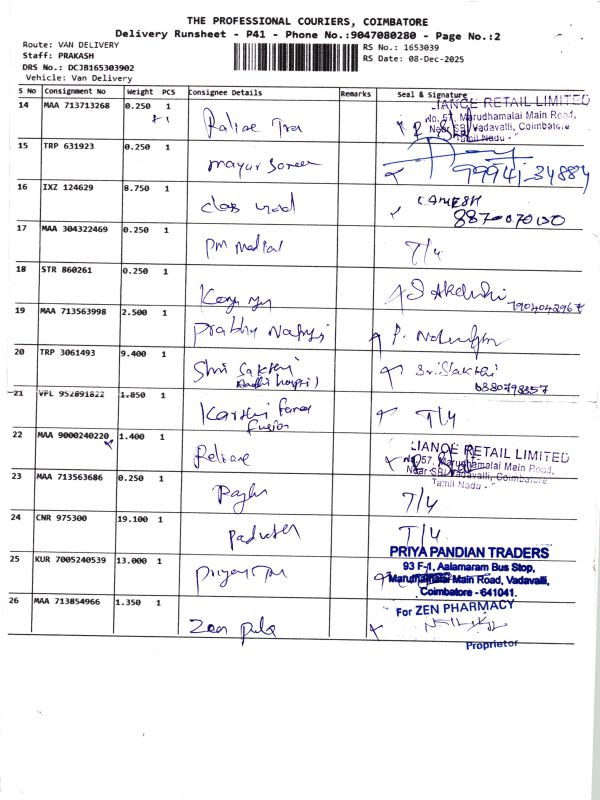 THE PROFESSIONAL COURIERS, COIMBATORE
Delivery Runsheet - P41 - Phone No.:9047080280 - Page No.:2
Route: VAN DELIVERY
RS No.: 1653039
Staff: PRAKASH
RS Date: 08-Dec-2025
DRS No.: DCJB165303902
Vehicle: Van Delivery
S No Consignment No Weight PCS Consignee Details Remarks Seal & Signature
14 MAA 713713268 0.250 1
LIANCE RETAIL LIMITED
No. 57, Marudhamalai Main Road,
Near SBI Vadavalli, Coimbatore
Tamil Nadu - "
15 TRP 631923 0.250 1
mayur Screen
99941-34884
16 IXZ 124629 8.750 1
GANESH
17 MAA 304322469 0.250 1
PM Medical T/4
18 STR 860261 0.250 1
7904042967
19 MAA 713563998 2.500 1
Prabhu P.
20 TRP 3061493 9.400 1
Shri Sakthi Sri Sakthi
21 VPL 952891822 1.850 1
T/4
22 MAA 9000240220 1.400 1
Reliance
LIANCE RETAIL LIMITED
No. 57, Marudhamalai Main Road,
Near SBI Vadavalli, Coimbatore
Tamil Nadu - "
23 MAA 713563686 0.250 1
T/4
24 CNR 975300 19.100 1
T/4
25 KUR 7005240539 13.000 1
PRIYA PANDIAN TRADERS
93 F-1, Aalamaram Bus Stop,
Marudhamalai Main Road, Vadavalli,
Coimbatore - 641041.
26 MAA 713854966 1.350 1
Zen
For ZEN PHARMACY
Proprietor